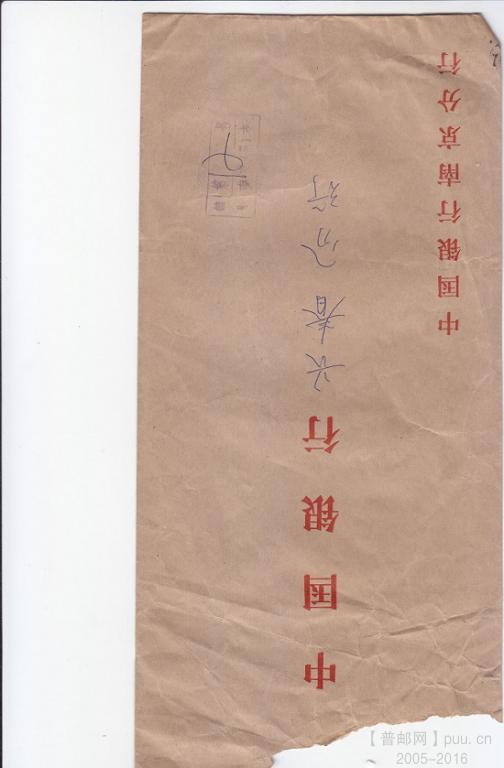 中国银行长春分行
中国银行南京分行
【普邮网】puu.cn
2005-2016